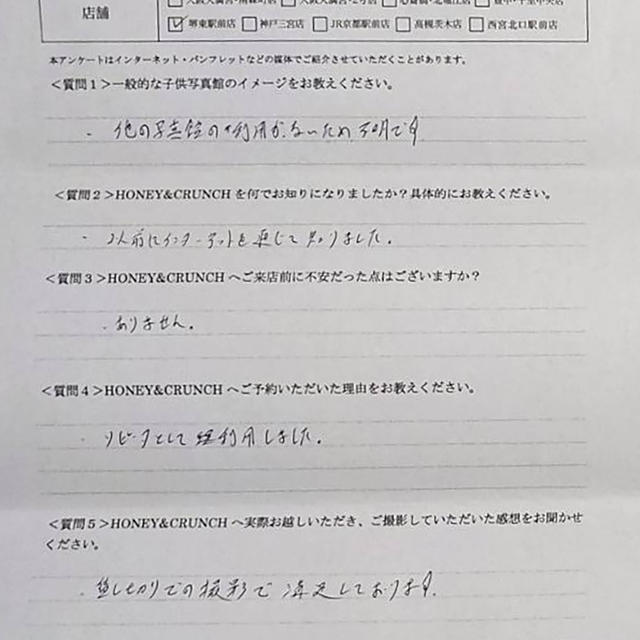 店舗
堺東駅前店 神戸三宮店 JR京都駅前店 高槻茨木店 西宮北口駅前店
本アンケートはインターネット・パンフレットなどの媒体でご紹介させていただくことがあります。
＜質問1＞一般的な子供写真館のイメージをお教えください。
・他の写真館の利用がないため不明です
＜質問2＞HONEY&CRUNCHを何でお知りになりましたか？具体的にお教えください。
・2人前にインターネットを通じて知りました。
＜質問3＞HONEY&CRUNCHへご来店前に不安だった点はございますか？
・ありません。
＜質問4＞HONEY&CRUNCHへご予約いただいた理由をお教えください。
・リピータとして 利用しました。
＜質問5＞HONEY&CRUNCHへ実際お越しいただき、ご撮影していただいた感想をお聞かせ
ください。
・貸し切りでの撮影で満足しております。